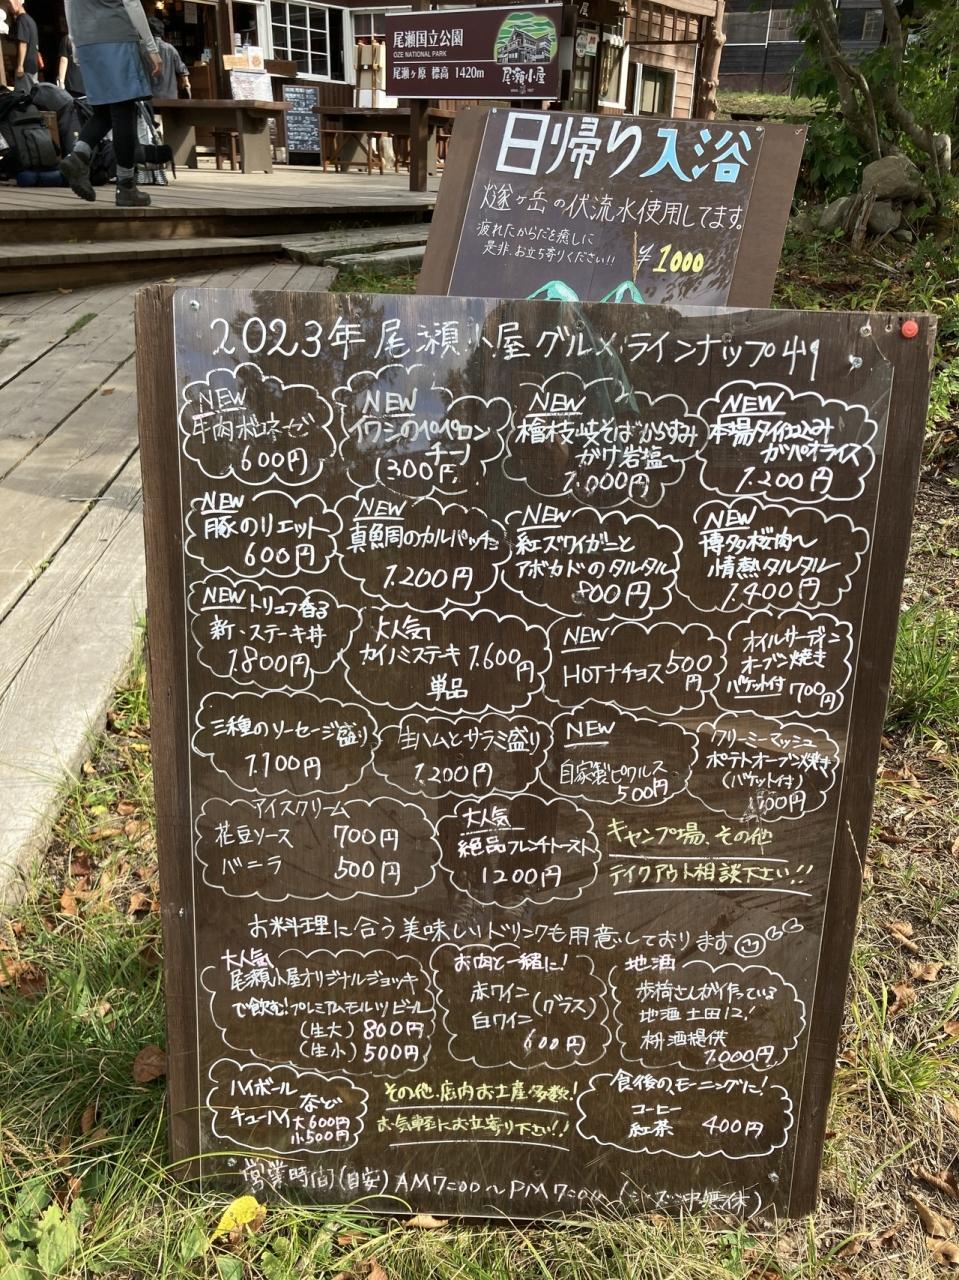 尾瀬国立公園
OZE NATIONAL PARK
尾瀬ヶ原 標高 1420m
尾瀬小屋
日帰り入浴
燧ヶ岳の伏流水使用してます。
疲れたからだを癒しに
是非、お立ち寄りください!!
¥1000
2023年 尾瀬小屋グルメラインナップ
NEW
牛肉ボロネーゼ
600円
NEW
イワシのペペロン
チーノ
1300円
NEW
檜枝岐そばからすみ
がけ岩塩〜
1.000円
NEW
本場タイ
ガパオライス
1.200円
NEW
豚のリエット
600円
NEW
真鯛のカルパッチョ
1.200円
NEW
紅ズワイガニと
アボカドのタルタル
800円
NEW
博多桜肉〜
情熱タルタル
1.400円
NEW トリュフ香る
新・ステーキ丼
1.800円
大人気
カイノミステーキ 1.600円
単品
NEW
HOTナチョス 500円
オイルサーディン
オーブン焼き
バケット付 700円
三種のソーセージ盛り
1.100円
生ハムとサラミ盛り
1.200円
NEW
自家製ピクルス
500円
クリーミーマッシュ
ポテトオーブン焼き
(バケット付)
アイスクリーム
花豆ソース 700円
バニラ 500円
大人気
絶品フレンチトースト
1200円
キャンプ場、その他
テイクアウト相談下さい!!
お料理に合う美味しいドリンクも用意しております
大人気
尾瀬小屋オリジナルジョッキ
で飲む!プレミアムモルツビール
(生大) 800円
(生小) 500円
お肉と一緒に!
赤ワイン
白ワイン (グラス)
600円
地酒
歩荷さんが作っている
地酒 土田12!
枡酒提供
1.000円
ハイボール
チューハイ など
大600円
小500円
その他、店内お土産多数!
お気軽にお立寄り下さい!!
食後のモーニングに!
コーヒー
紅茶 400円
営業時間(目安) AM7:00〜PM7:00